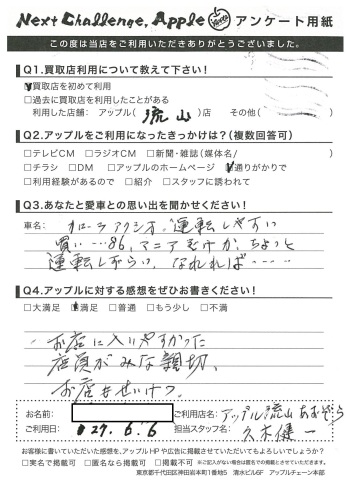 Next Challenge, Apple アンケート用紙
この度は当店をご利用いただきありがとうございました。
Q1.買取店利用について教えて下さい!
☑買取店を初めて利用
□過去に買取店を利用したことがある
利用した店舗: アップル( 流山 )店 その他( )
Q2.アップルをご利用になったきっかけは?(複数回答可)
□テレビCM □ラジオCM □新聞・雑誌(媒体名/ )
□チラシ □DM □アップルのホームページ ☑通りがかりで
□利用経験があるので □紹介 □スタッフに誘われて
Q3.あなたと愛車との思い出を聞かせください!
車名: カローラアクシオ。運転しやすい
買い…86,マニアむけか、ちょっと
運転しずらい、なれれば……
Q4.アップルに対する感想をぜひお書きください!
□大満足 ☑満足 □普通 □もう少し □不満
お店に入いやすかった
店員がみな親切、
お店もせいけつ
お名前: ご利用店名: アップル流山おおぞら
ご利用日: 27.6.6 担当スタッフ名: 久木健一
お客様に書いていただいた感想を、アップルHPや広告に掲載させていただいてもよろしいでしょうか?
□実名で掲載可 □匿名なら掲載可 □掲載不可 ※ご記入がない場合は匿名での掲載とさせていただきます。
東京都千代田区神田岩本町1番地5 清水ビル5F アップルチェーン本部